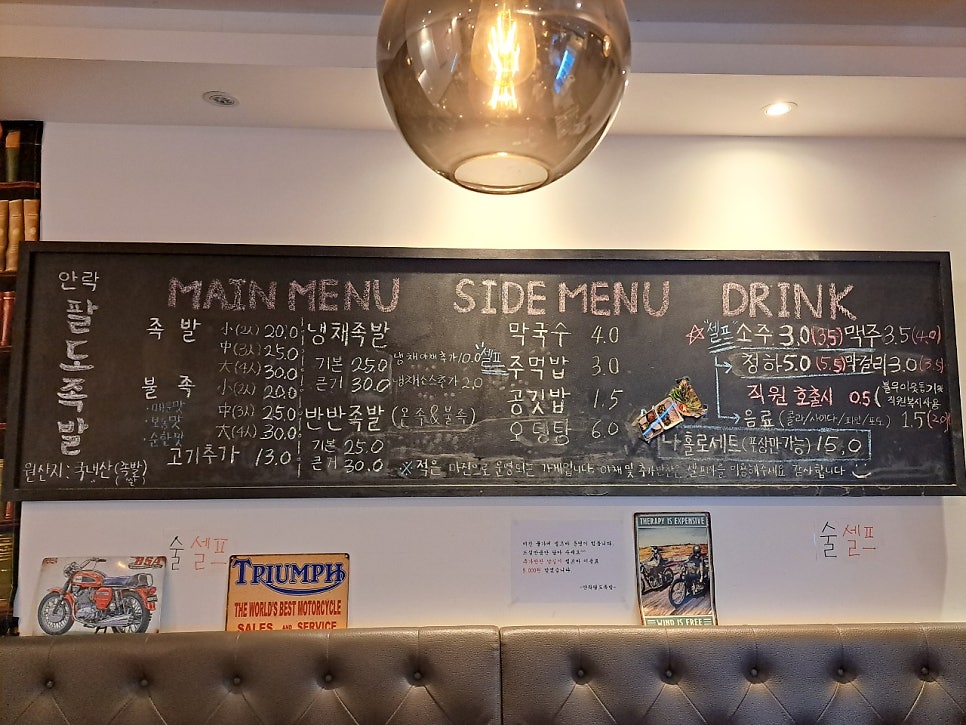 안락
팔도족발
원산지: 국내산(족발)
MAIN MENU
족 발 小(2人) 20.0
中(3人) 25.0
大(4人) 30.0
불 족 小(2人) 20.0
·매운맛
·보통맛 中(3人) 25.0
·순한맛 大(4人) 30.0
고기추가 13.0
냉채족발
기본 25.0
큰거 30.0
냉채야채추가 10.0
냉채소스추가 2.0
반반족발 (온족&불족)
기본 25.0
큰거 30.0
SIDE MENU
막국수 4.0
셀프
주먹밥 3.0
공깃밥 1.5
오뎅탕 6.0
DRINK
☆ 셀프 소주 3.0 (3.5) 맥주 3.5 (4.0)
청하 5.0 (5.5) 막걸리 3.0 (3.5)
직원 호출시 0.5 (불우이웃돕기 및
직원복지사용
음료 (콜라/사이다/ 1.5 (2.0)
나홀로세트 (포장만가능) 15.0
※적은 마진으로 운영되는 가게입니다 야채 및 추가반찬은 셀프바를 이용해주세요 감사합니다
술 셀프
술 셀프
BSA
TRIUMPH
THE WORLD'S BEST MOTORCYCLE
SALES AND SERVICE
5,000원
THERAPY IS EXPENSIVE
WIND IS FREE